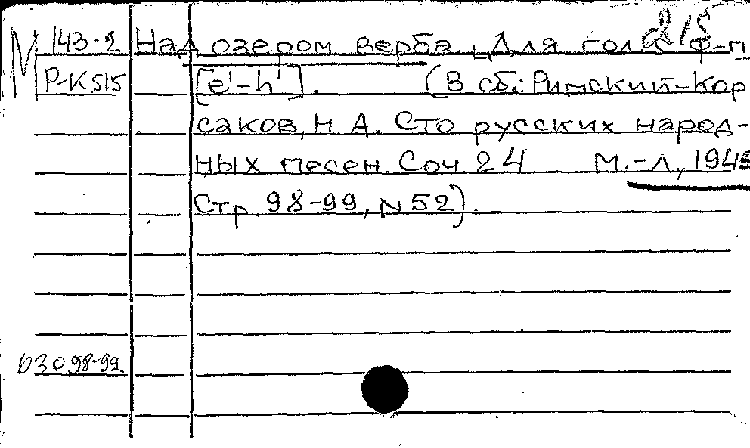 215
М 143-2 Над озером верба, Для гол. с ф-п
Р-К515 [e¹-h¹]. (В сб: Римский-Кор
саков, Н. А. Сто русских народ-
ных песен. Соч 24 М.-Л., 1945
Стр. 98-99, N 52).
98-99